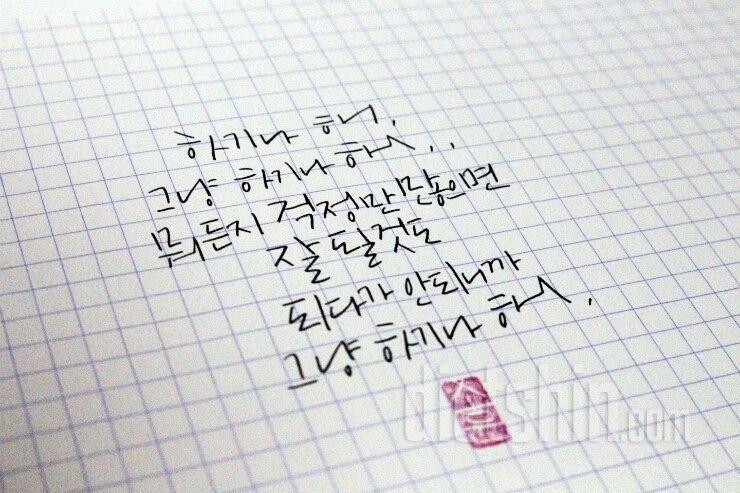 하기나 해.
그냥 하기나 해..
뭐든지 걱정만 많으면
잘 될것도
되다가 안되니까
그냥 하기나 해.
dietshin.com